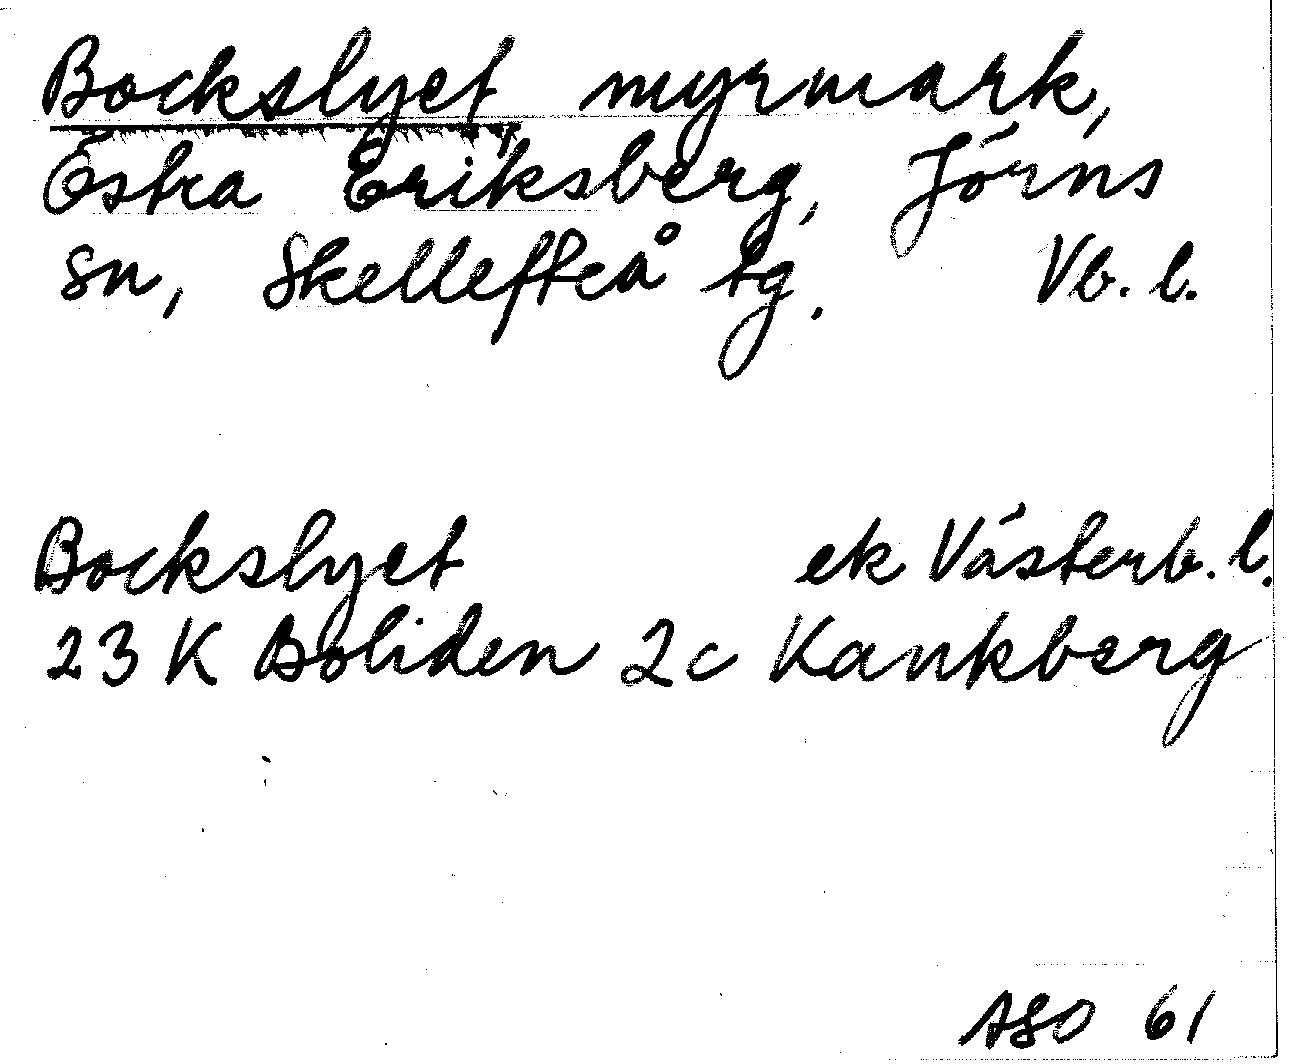 Bockslyet myrmark,
Östra Eriksberg, Jörns
sn, Skellefteå tg. Vb. l.
Bockslyet ek Västerb. l.
23 K Boliden 2c Kankberg
ASO 61